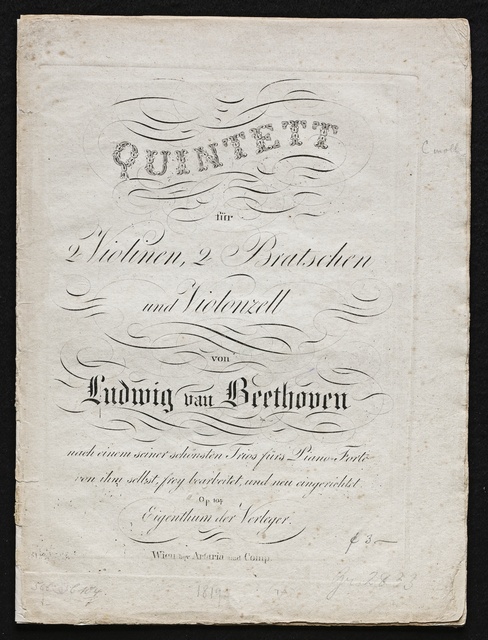 QUINTETT
C moll
für
2 Violinen, 2 Bratschen
und Violonzell
von
Ludwig van Beethoven
nach einem seiner schönsten Trios fürs Piano-Forte
von ihm selbst, frey bearbeitet, und neu eingerichtet
Op 104
Eigenthum der Verleger.
f 3
Wien bey Artaria und Comp.